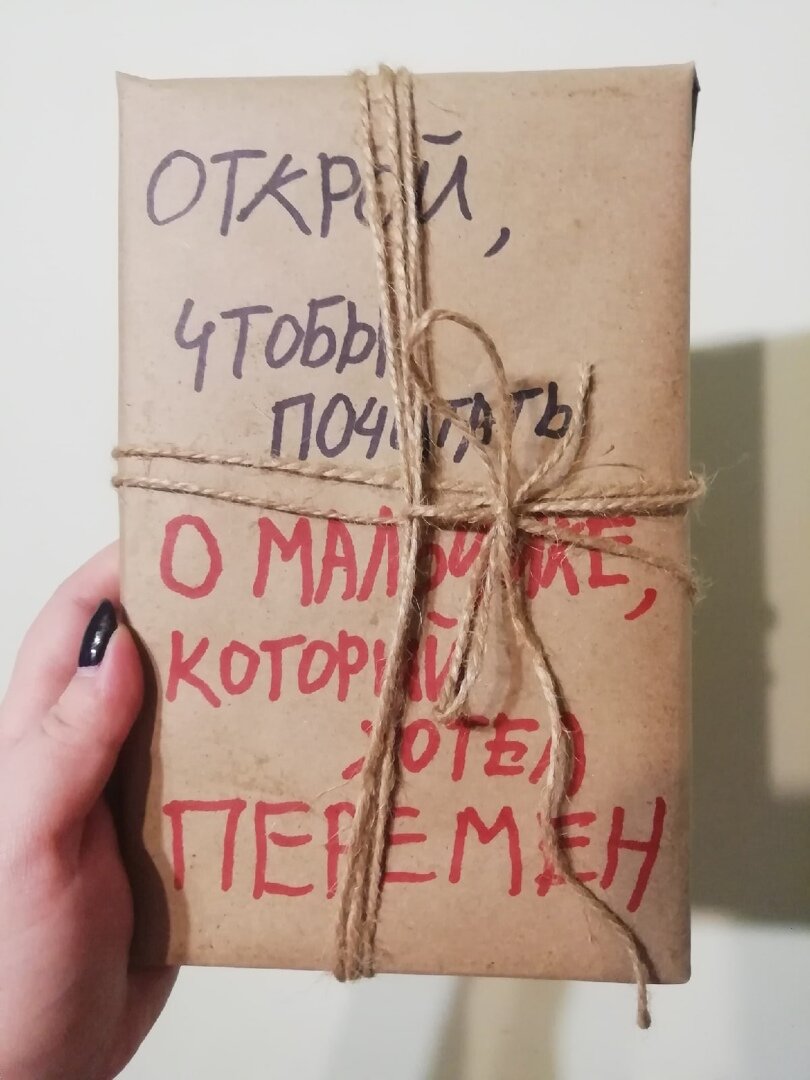 ОТКРОЙ,
ЧТОБЫ
ПОЧИТАТЬ
О МАЛЬЧИКЕ,
КОТОРЫЙ
ХОТЕЛ
ПЕРЕМЕН